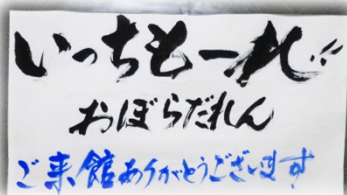 いっちもーれ!!
おぼらだれん
ご来館ありがとうございます